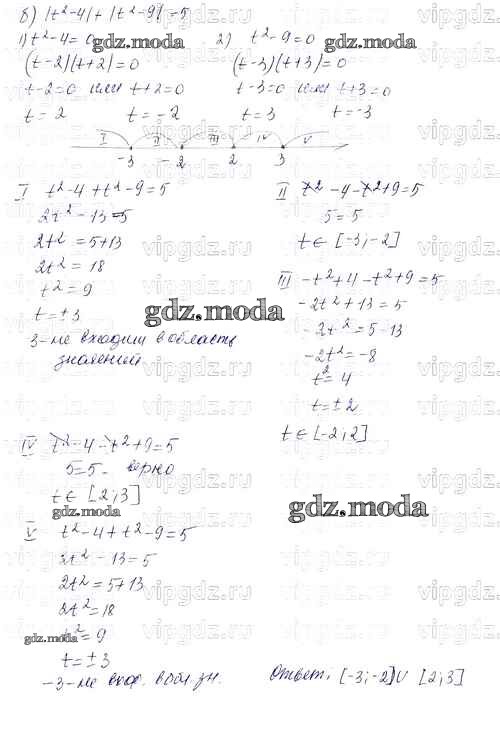 б) |t²-4| + |t²-9| = 5
1) t²-4=0 2) t²-9=0
gdz.moda gdz.moda
(t-2)(t+2)=0 (t-3)(t+3)=0
t-2=0 или t+2=0 t-3=0 или t+3=0
t=2 t=-2 t=3 t=-3
I II III IV V
-3 -2 2 3
I t²-4+t²-9=5
2t²-13=5
2t²=5+13
2t²=18
t²=9
t=±3
3-не входит в область
значений
II t²-4-t²+9=5
5=5
t∈[-3;-2]
III -t²+4-t²+9=5
-2t²+13=5
-2t²=5-13
-2t²=-8
t²=4
t=±2
t∈[-2;2]
gdz.moda
IV t²-4-t²+9=5
5=5- верно
t∈[2;3]
gdz.moda
gdz.moda
V t²-4+t²-9=5
2t²-13=5
2t²=5+13
2t²=18
t²=9
gdz.moda
t=±3
-3-не вход. в обл. зн.
Ответ: [-3;-2]U [2;3]
vipgdz.ru